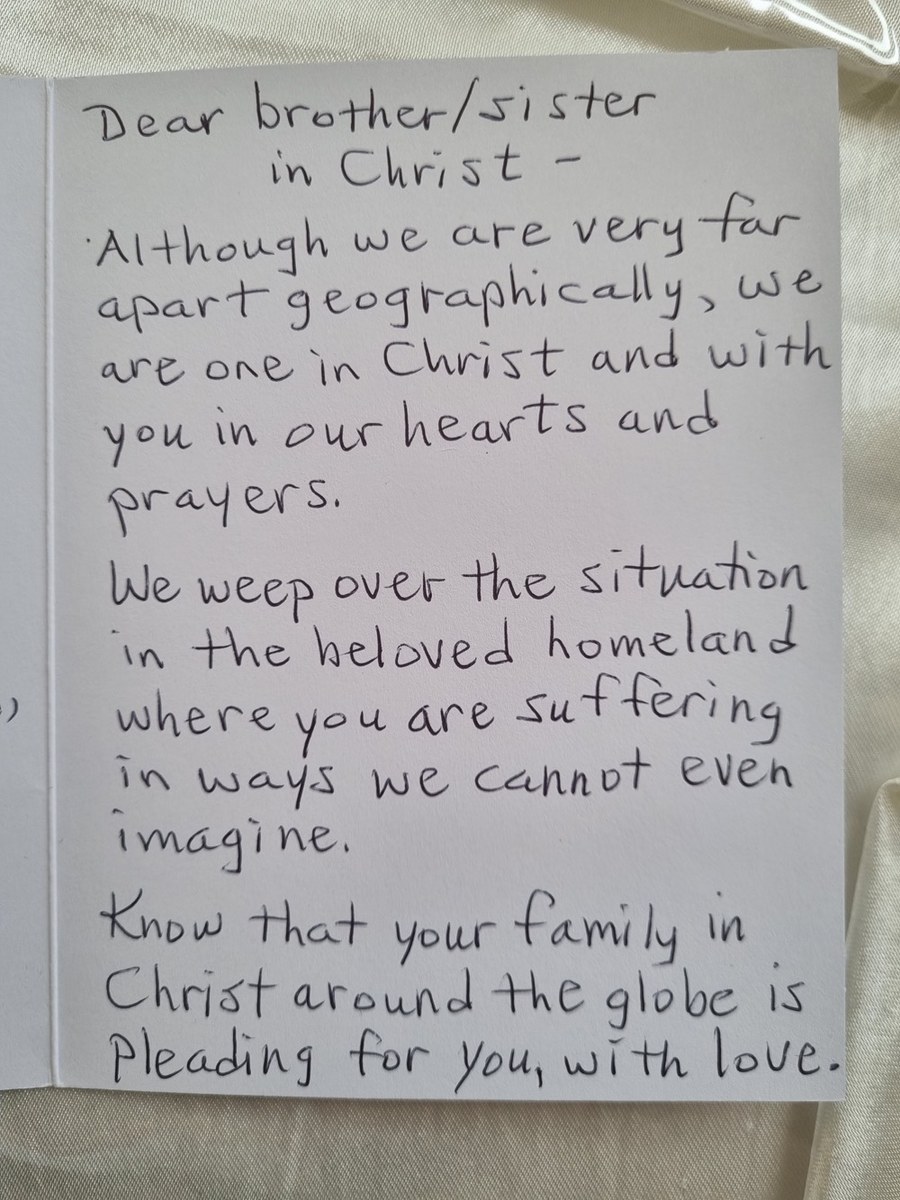 Dear brother/sister
in Christ -
Although we are very far
apart geographically, we
are one in Christ and with
you in our hearts and
prayers.
We weep over the situation
in the beloved homeland
where you are suffering
in ways we cannot even
imagine.
Know that your family in
Christ around the globe is
Pleading for you, with love.